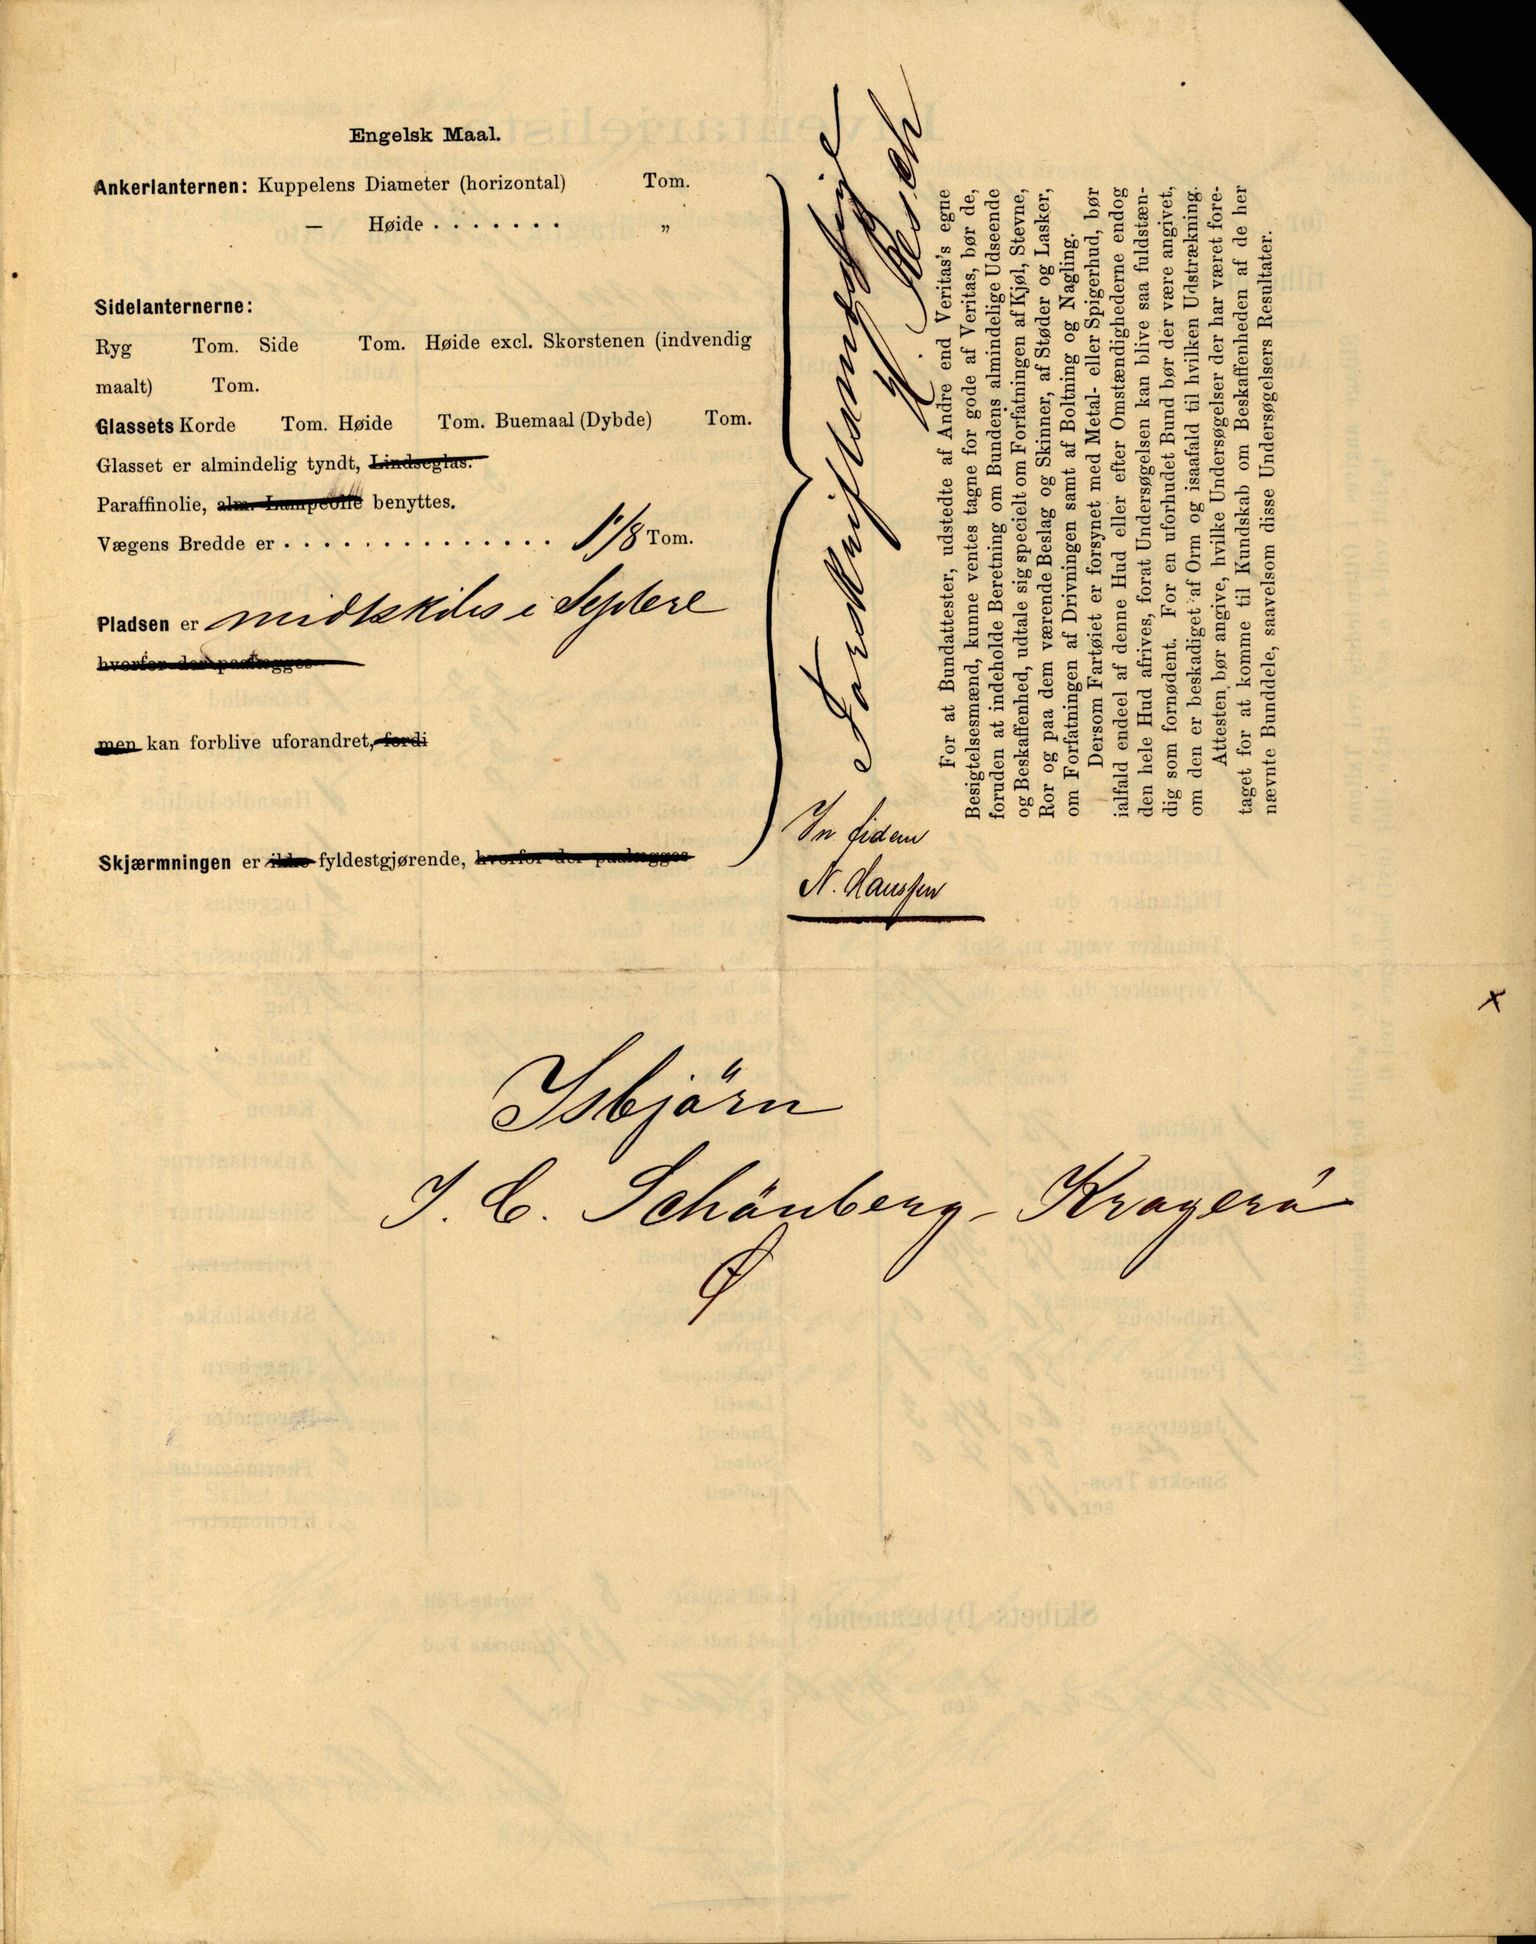 Engelsk Maal.
Ankerlanternen: Kuppelens Diameter (horizontal) Tom.
— Høide . . . . . . . „
Sidelanternerne:
Ryg Tom. Side Tom. Høide excl. Skorstenen (indvendig
maalt) Tom.
Glassets Korde Tom. Høide Tom. Buemaal (Dybde) Tom.
Glasset er almindelig tyndt, Lindseglas.
Paraffinolie, alm. Lampeolie benyttes.
Vægens Bredde er . . . . . . . . . . . . . . . 1 1/8 Tom.
Pladsen er midtskibs i
hvorfor der paalægges
men kan forblive uforandret, fordi
Skjærmningen er ikke fyldestgjørende, hvorfor der paalægges
Forskriftsmæssige
H. Resch
In fidem
N. Hanssen
For at Bundattester, udstedte af Andre end Veritas's egne
Besigtelsesmænd, kunne ventes tagne for gode af Veritas, bør de,
foruden at indeholde Beretning om Bundens almindelige Udseende
og Beskaffenhed, udtale sig specielt om Forfatningen af Kjøl, Stevne,
Ror og paa dem værende Beslag og Skinner, af Støder og Lasker,
om Forfatningen af Drivningen samt af Boltning og Nagling.
Dersom Fartøiet er forsynet med Metal- eller Spigerhud, bør
ialfald endeel af denne Hud eller efter Omstændighederne endog
den hele Hud afrives, forat Undersøgelsen kan blive saa fuldstæn-
dig som fornødent. For en uforhudet Bund bør der være angivet,
om den er beskadiget af Orm og isaafald til hvilken Udstrækning.
Attesten bør angive, hvilke Undersøgelser der har været fore-
taget for at komme til Kundskab om Beskaffenheden af de her
nævnte Bunddele, saavelsom disse Undersøgelsers Resultater.
x
Isbjörn
J. C. Schönberg - Kragerö